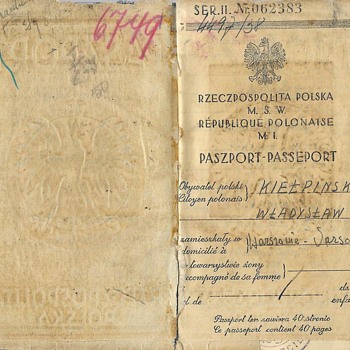 6749
SER. II. № 062383
4497/38
RZECZPOSPOLITA POLSKA
M. S. W.
RÉPUBLIQUE POLONAISE
M. I.
PASZPORT-PASSEPORT
Obywatel polski
Citoyen polonais
KIEŁPIŃSK
WŁADYSŁAW
zamieszkały w
domicilié à
Warszawie - Varso
towarzystwie żony
compagné de sa femme
et de
enfa
Paszport ten zawiera 40 stronic
Ce passeport contient 40 pages